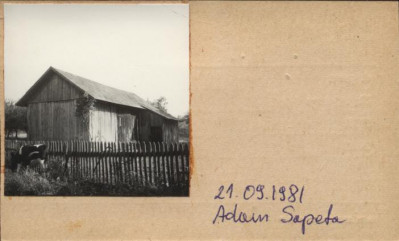 21.09.1981
Adam Sapeta